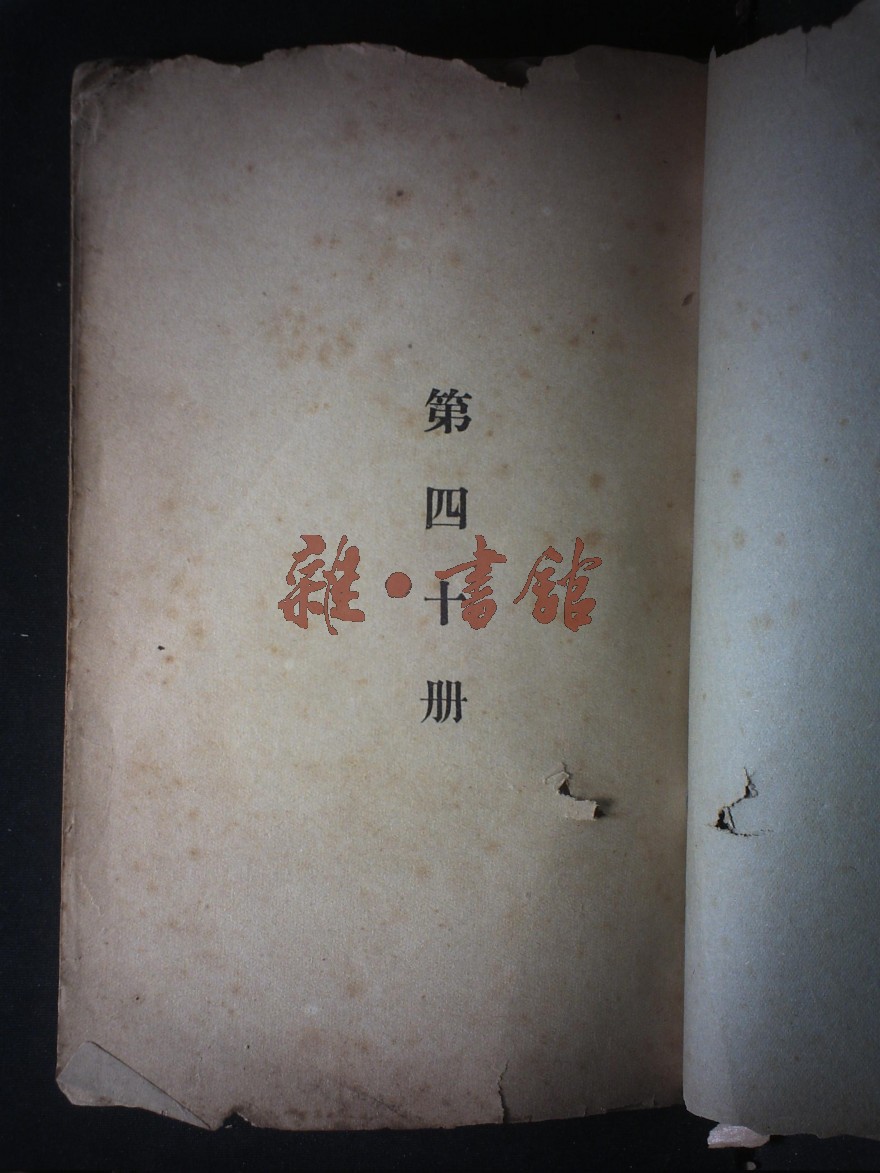 第四十册
雜·書館